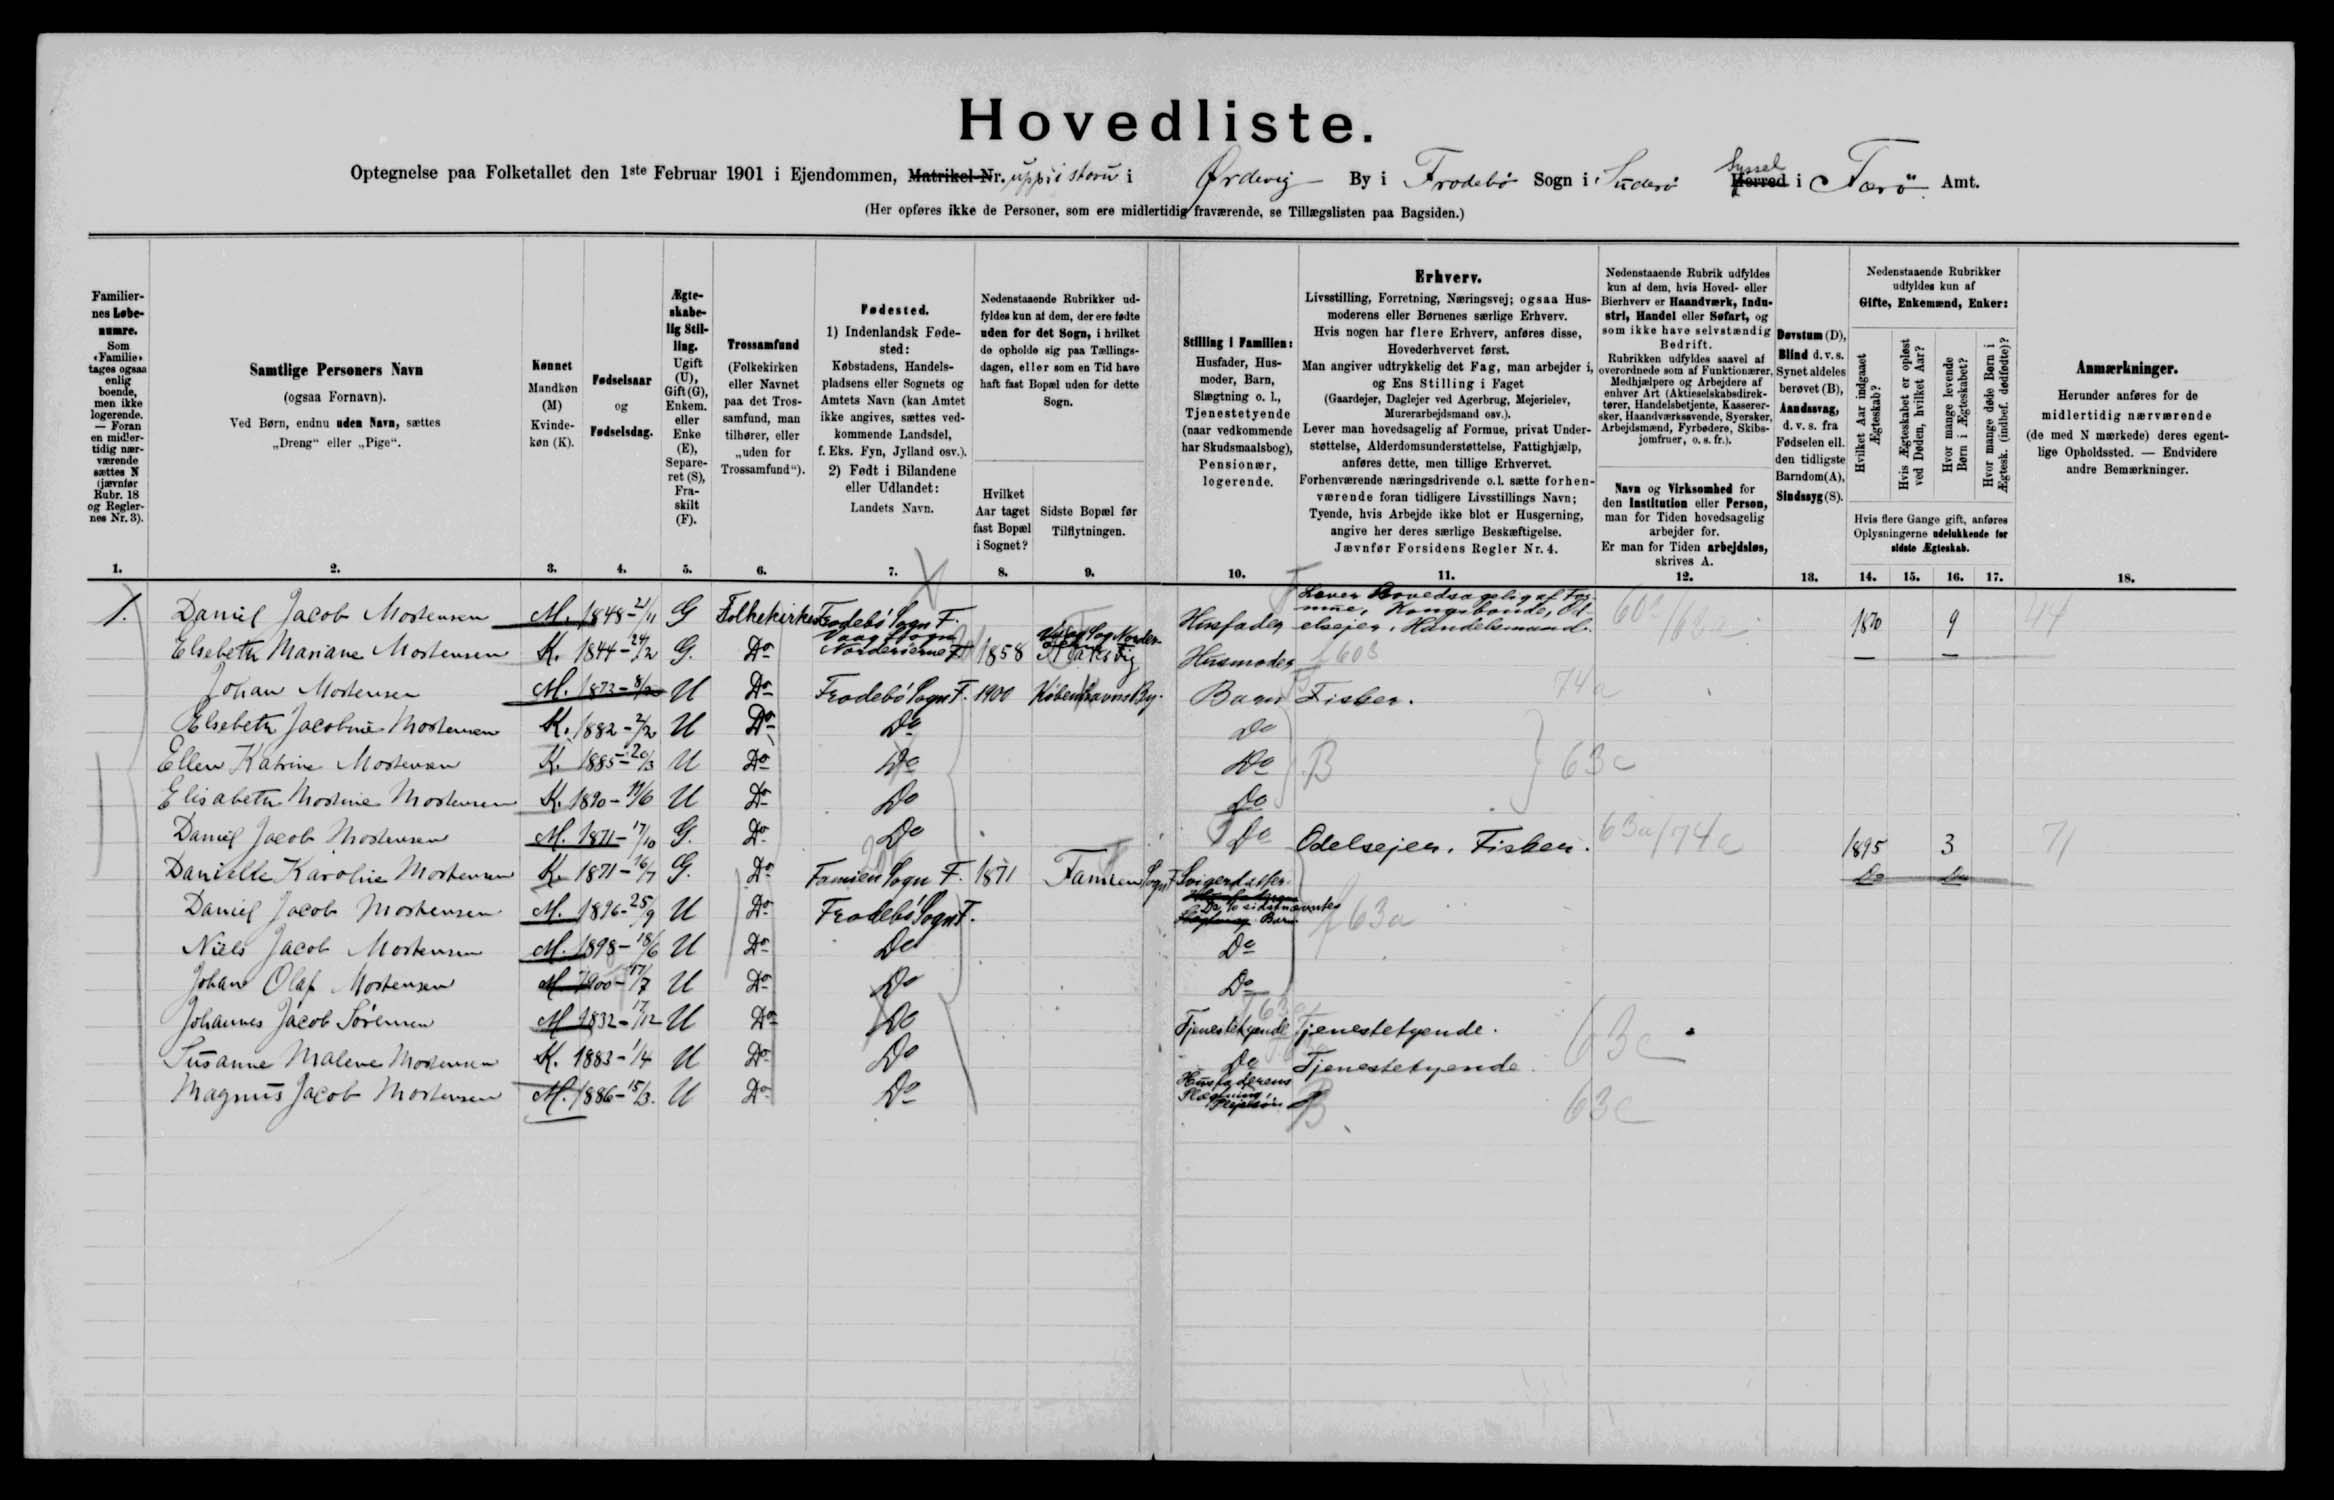 Hovedliste.
Optegnelse paa Folketallet den 1ste Februar 1901 i Ejendommen, Matrikel-Nr. uppi i stovu i Ørdevig By i Frodebø Sogn i Suderø Syssel Herred i Færø Amt.
(Her opføres ikke de Personer, som ere midlertidig fraværende, se Tillægslisten paa Bagsiden.)
Familiernes Løbenumre. Som «Familie» tages ogsaa enlig boende, men ikke logerende. — Foran en midlertidig nærværende sættes N (jævnfør Rubr. 18 og Reglernes Nr. 3).
Samtlige Personers Navn (ogsaa Fornavn). Ved Børn, endnu uden Navn, sættes „Dreng" eller „Pige".
Kønnet Mandkøn (M) Kvindekøn (K).
Fødselsaar og Fødselsdag.
Ægteskabelig Stilling. Ugift (U), Gift (G), Enkem. eller Enke (E), Separeret (S), Fraskilt (F).
Trossamfund (Folkekirken eller Navnet paa det Trossamfund, man tilhører, eller „uden for Trossamfund").
Fødested. 1) Indenlandsk Fødested: Købstadens, Handelspladsens eller Sognets og Amtets Navn (kan Amtet ikke angives, sættes vedkommende Landsdel, f. Eks. Fyn, Jylland osv.). 2) Født i Bilandene eller Udlandet: Landets Navn.
Nedenstaaende Rubrikker udfyldes kun af dem, der ere fødte uden for det Sogn, i hvilket de opholde sig paa Tællingsdagen, eller som en Tid have haft fast Bopæl uden for dette Sogn.
Hvilket Aar taget fast Bopæl i Sognet?
Sidste Bopæl før Tilflytningen.
Stilling i Familien: Husfader, Husmoder, Barn, Slægtning o. l., Tjenestetyende (naar vedkommende har Skudsmaalsbog), Pensionær, logerende.
Erhverv.
Livsstilling, Forretning, Næringsvej; ogsaa Husmoderens eller Børnenes særlige Erhverv.
Hvis nogen har flere Erhverv, anføres disse, Hovederhvervet først.
Man angiver udtrykkelig det Fag, man arbejder i, og Ens Stilling i Faget
(Gaardejer, Daglejer ved Agerbrug, Mejerielev, Murerarbejdsmand osv.).
Lever man hovedsagelig af Formue, privat Understøttelse, Alderdomsunderstøttelse, Fattighjælp, anføres dette, men tillige Erhvervet.
Forhenværende næringsdrivende o.l. sætte forhenværende foran tidligere Livsstillings Navn; Tyende, hvis Arbejde ikke blot er Husgerning, angive her deres særlige Beskæftigelse.
Jævnfør Forsidens Regler Nr. 4.
Nedenstaaende Rubrik udfyldes kun af dem, hvis Hoved- eller Bierhverv er Haandværk, Industri, Handel eller Søfart, og som ikke have selvstændig Bedrift.
Rubrikken udfyldes saavel af overordnede som af Funktionærer, Medhjælpere og Arbejdere af enhver Art (Aktieselskabsdirektører, Handelsbetjente, Kasserersker, Haandværkssvende, Syersker, Arbejdsmænd, Fyrbødere, Skibsjomfruer, o. s. fr.).
Navn og Virksomhed for den Institution eller Person, man for Tiden hovedsagelig arbejder for.
Er man for Tiden arbejdsløs, skrives A.
Døvstum (D), Blind d. v. s. Synet aldeles berøvet (B), Aandssvag, d. v. s. fra Fødselen ell. den tidligste Barndom (A), Sindssyg (S).
Nedenstaaende Rubrikker udfyldes kun af Gifte, Enkemænd, Enker:
Hvilket Aar indgaaet Ægteskab?
Hvis Ægteskabet er opløst ved Døden, hvilket Aar?
Hvor mange levende Børn i Ægteskabet?
Hvor mange døde Børn i Ægtesk. (indbef. dødfødte)?
Hvis flere Gange gift, anføres Oplysningerne udelukkende for sidste Ægteskab.
Anmærkninger.
Herunder anføres for de midlertidig nærværende (de med N mærkede) deres egentlige Opholdssted. — Endvidere andre Bemærkninger.
1. 2. 3. 4. 5. 6. 7. 8. 9. 10. 11. 12. 13. 14. 15. 16. 17. 18.
1. Daniel Jacob Mortensen M. 1848-21/11 G Folkekirken Frodebø Sogn F. Husfader Lever Hovedsagelig af Formue, Kongsbonde, Odelsejer, Handelsmand. 1870 9 44
Elsebeth Mariane Mortensen K. 1844-24/2 G. Do Norderøerne F 1858 Klaksvig Husmoder f 603 — —
Johan Mortensen M. 1873 U Do Frodebø Sogn F. 1900 Københavns By. Barn Fisker. 74a
Elsebeth Jacobine Mortensen K. 1882-2/2 U Do Do Do
Ellen Katrine Mortensen K. 1885-20/3 U Do Do Do B 63c
Elisabeth Mortine Mortensen K. 1890-19/6 U Do Do Do
Daniel Jacob Mortensen M. 1871-17/10 G. Do Do Do Odelsejer. Fisker. 63a/74a 1895 3 71
Danielle Karoline Mortensen K. 1871-16/7 G. Do Famien Sogn F. 1871 Famien Sogn F Svigerdatter Do Do
Daniel Jacob Mortensen M. 1896-25/9 U Do Frodebø Sogn F. De to sidstnævntes Barn f 63a
Niels Jacob Mortensen M. 1898-18/6 U Do Do Do
Johan Olaf Mortensen M 1900-17/7 U Do Do Do
Johannes Jacob Sørensen M 1832-17/12 U Do Do Tjenestetyende Tjenestetyende. 63c
Susanne Malene Mortensen K. 1883-1/4 U Do Do Do Tjenestetyende
Magnus Jacob Mortensen M. 1886-15/3. U Do Do Husfaderens Slægtning, Plejesøn B 63c